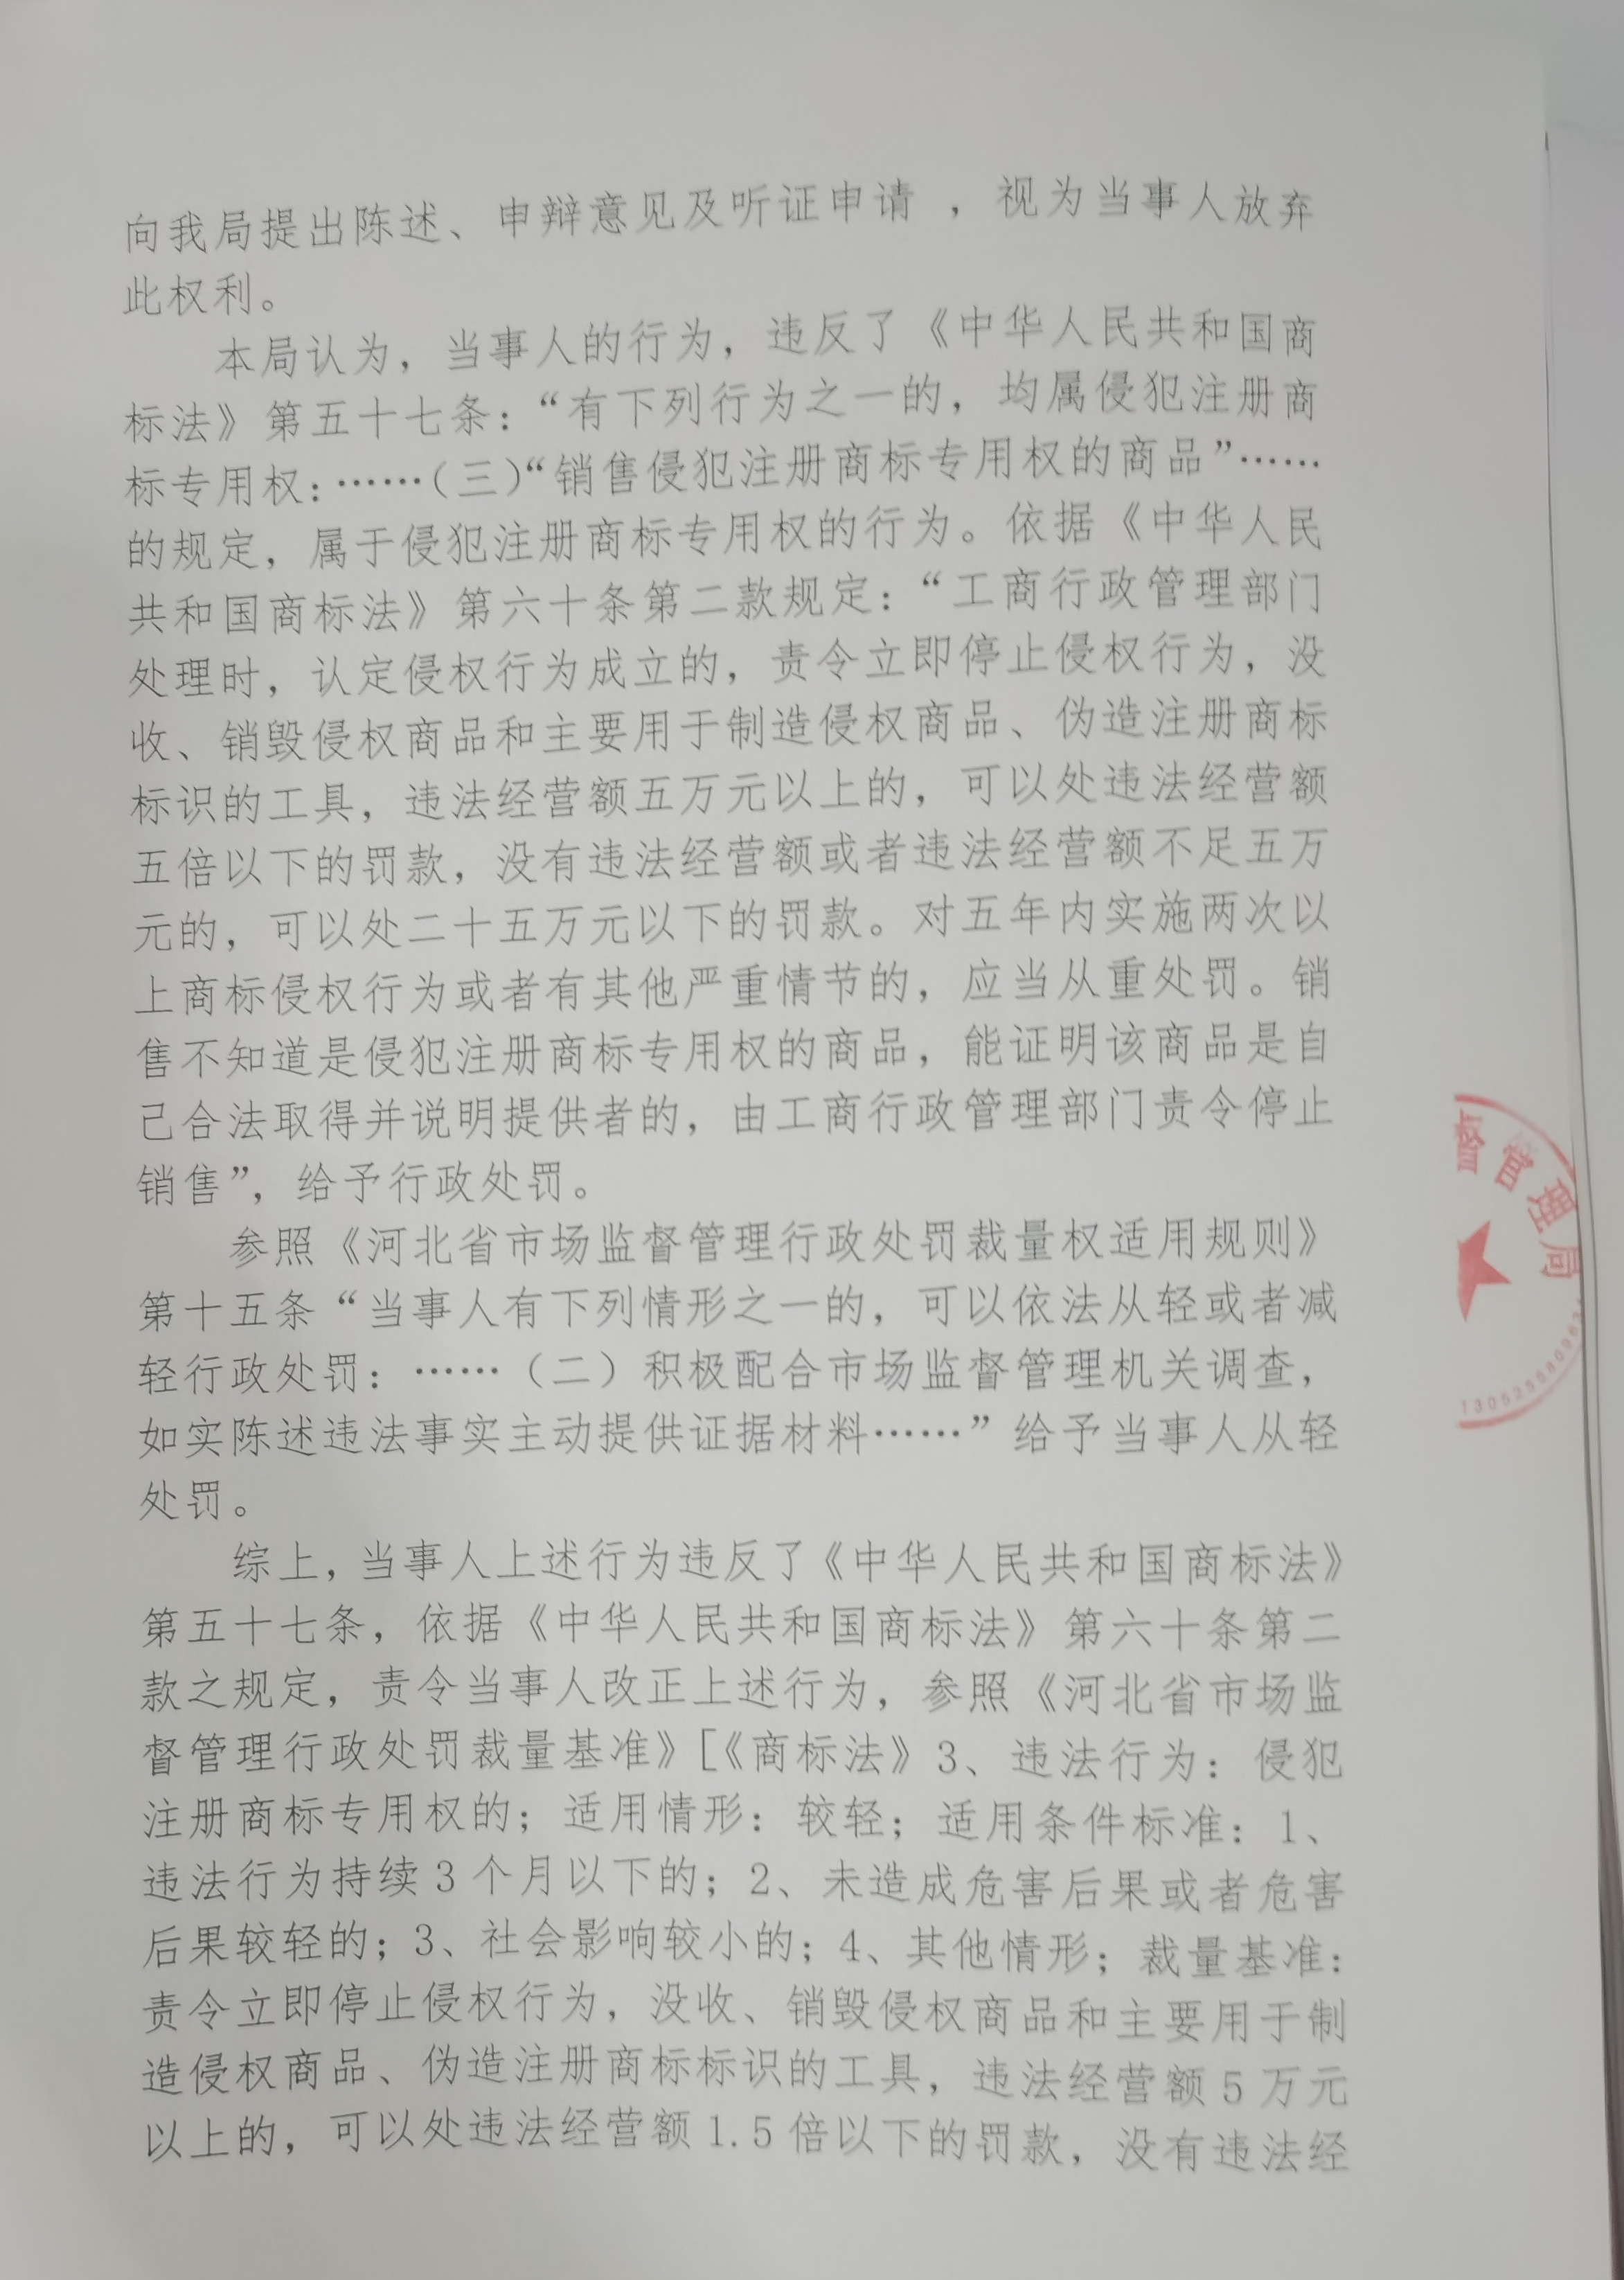 向我局提出陈述、申辩意见及听证申请 ，视为当事人放弃
此权利。
本局认为，当事人的行为，违反了《中华人民共和国商
标法》第五十七条：“有下列行为之一的，均属侵犯注册商
标专用权：……(三)“销售侵犯注册商标专用权的商品”……
的规定，属于侵犯注册商标专用权的行为。依据《中华人民
共和国商标法》第六十条第二款规定：“工商行政管理部门
处理时，认定侵权行为成立的，责令立即停止侵权行为，没
收、销毁侵权商品和主要用于制造侵权商品、伪造注册商标
标识的工具，违法经营额五万元以上的，可以处违法经营额
五倍以下的罚款，没有违法经营额或者违法经营额不足五万
元的，可以处二十五万元以下的罚款。对五年内实施两次以
上商标侵权行为或者有其他严重情节的，应当从重处罚。销
售不知道是侵犯注册商标专用权的商品，能证明该商品是自
己合法取得并说明提供者的，由工商行政管理部门责令停止
销售”，给予行政处罚。
参照《河北省市场监督管理行政处罚裁量权适用规则》
第十五条“当事人有下列情形之一的，可以依法从轻或者减
轻行政处罚：……（二）积极配合市场监督管理机关调查，
如实陈述违法事实主动提供证据材料……”给予当事人从轻
处罚。
综上，当事人上述行为违反了《中华人民共和国商标法》
第五十七条，依据《中华人民共和国商标法》第六十条第二
款之规定，责令当事人改正上述行为，参照《河北省市场监
督管理行政处罚裁量基准》[《商标法》3、违法行为：侵犯
注册商标专用权的；适用情形：较轻；适用条件标准：1、
违法行为持续3个月以下的；2、未造成危害后果或者危害
后果较轻的；3、社会影响较小的；4、其他情形；裁量基准：
责令立即停止侵权行为，没收、销毁侵权商品和主要用于制
造侵权商品、伪造注册商标标识的工具，违法经营额5万元
以上的，可以处违法经营额1.5倍以下的罚款，没有违法经
督管理局